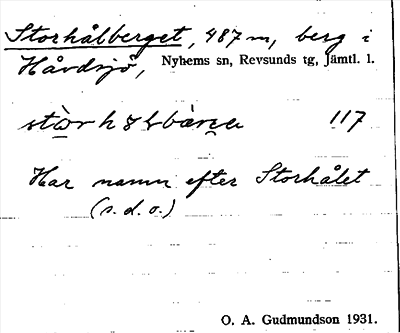 Storhålberget, 487 m, berg i
Håvdsjö, Nyhems sn, Revsunds tg, Jämtl. l.
117
Har namn efter Storhålet
(s. d. o.)
O. A. Gudmundson 1931.